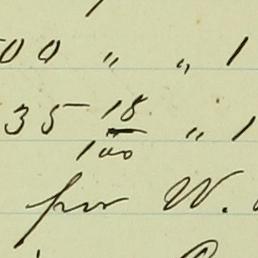 00 " " 1
35 18/100 " 1
for W.